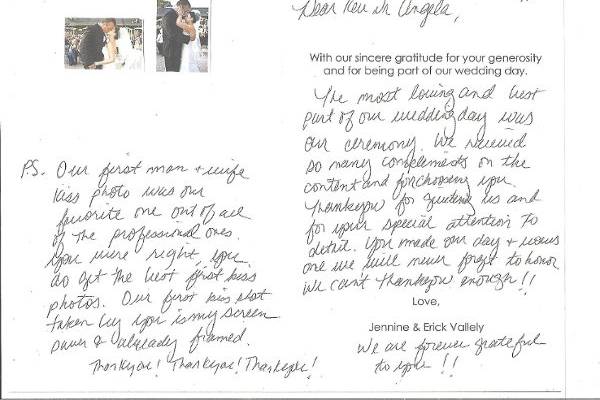 Dear Rev. Dr. Angela,
With our sincere gratitude for your generosity
and for being part of our wedding day.
The most loving and best
part of our wedding day was
our ceremony. We received
so many complements on the
content and for choosing you.
Thankyou for guiding us and
for your special attention to
detail. You made our day + vows
one we will never forget to honor
We can't thankyou enough!!
Love,
Jennine & Erick Vallely
We are forever grateful
to you!!
P.S. Our first man + wife
kiss photo was our
favorite one out of all
of the professional ones.
You were right, you
do get the best first kiss
photos. Our first kiss shot
taken by you is my screen
saver & already framed.
Thankyou! Thankyou! Thankyou!